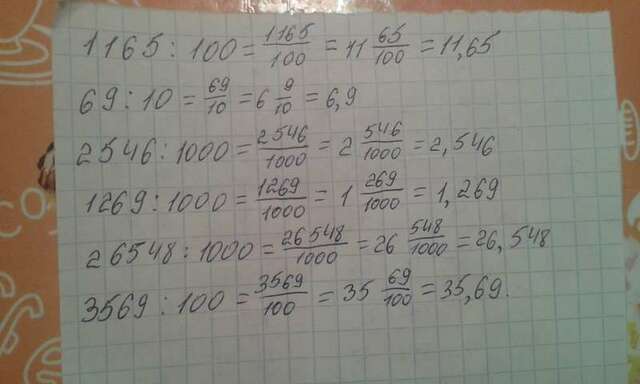 1165 : 100 = 1165/100 = 11 65/100 = 11,65
69 : 10 = 69/10 = 6 9/10 = 6,9
2546 : 1000 = 2546/1000 = 2 546/1000 = 2,546
1269 : 1000 = 1269/1000 = 1 269/1000 = 1,269
26548 : 1000 = 26548/1000 = 26 548/1000 = 26,548
3569 : 100 = 3569/100 = 35 69/100 = 35,69.